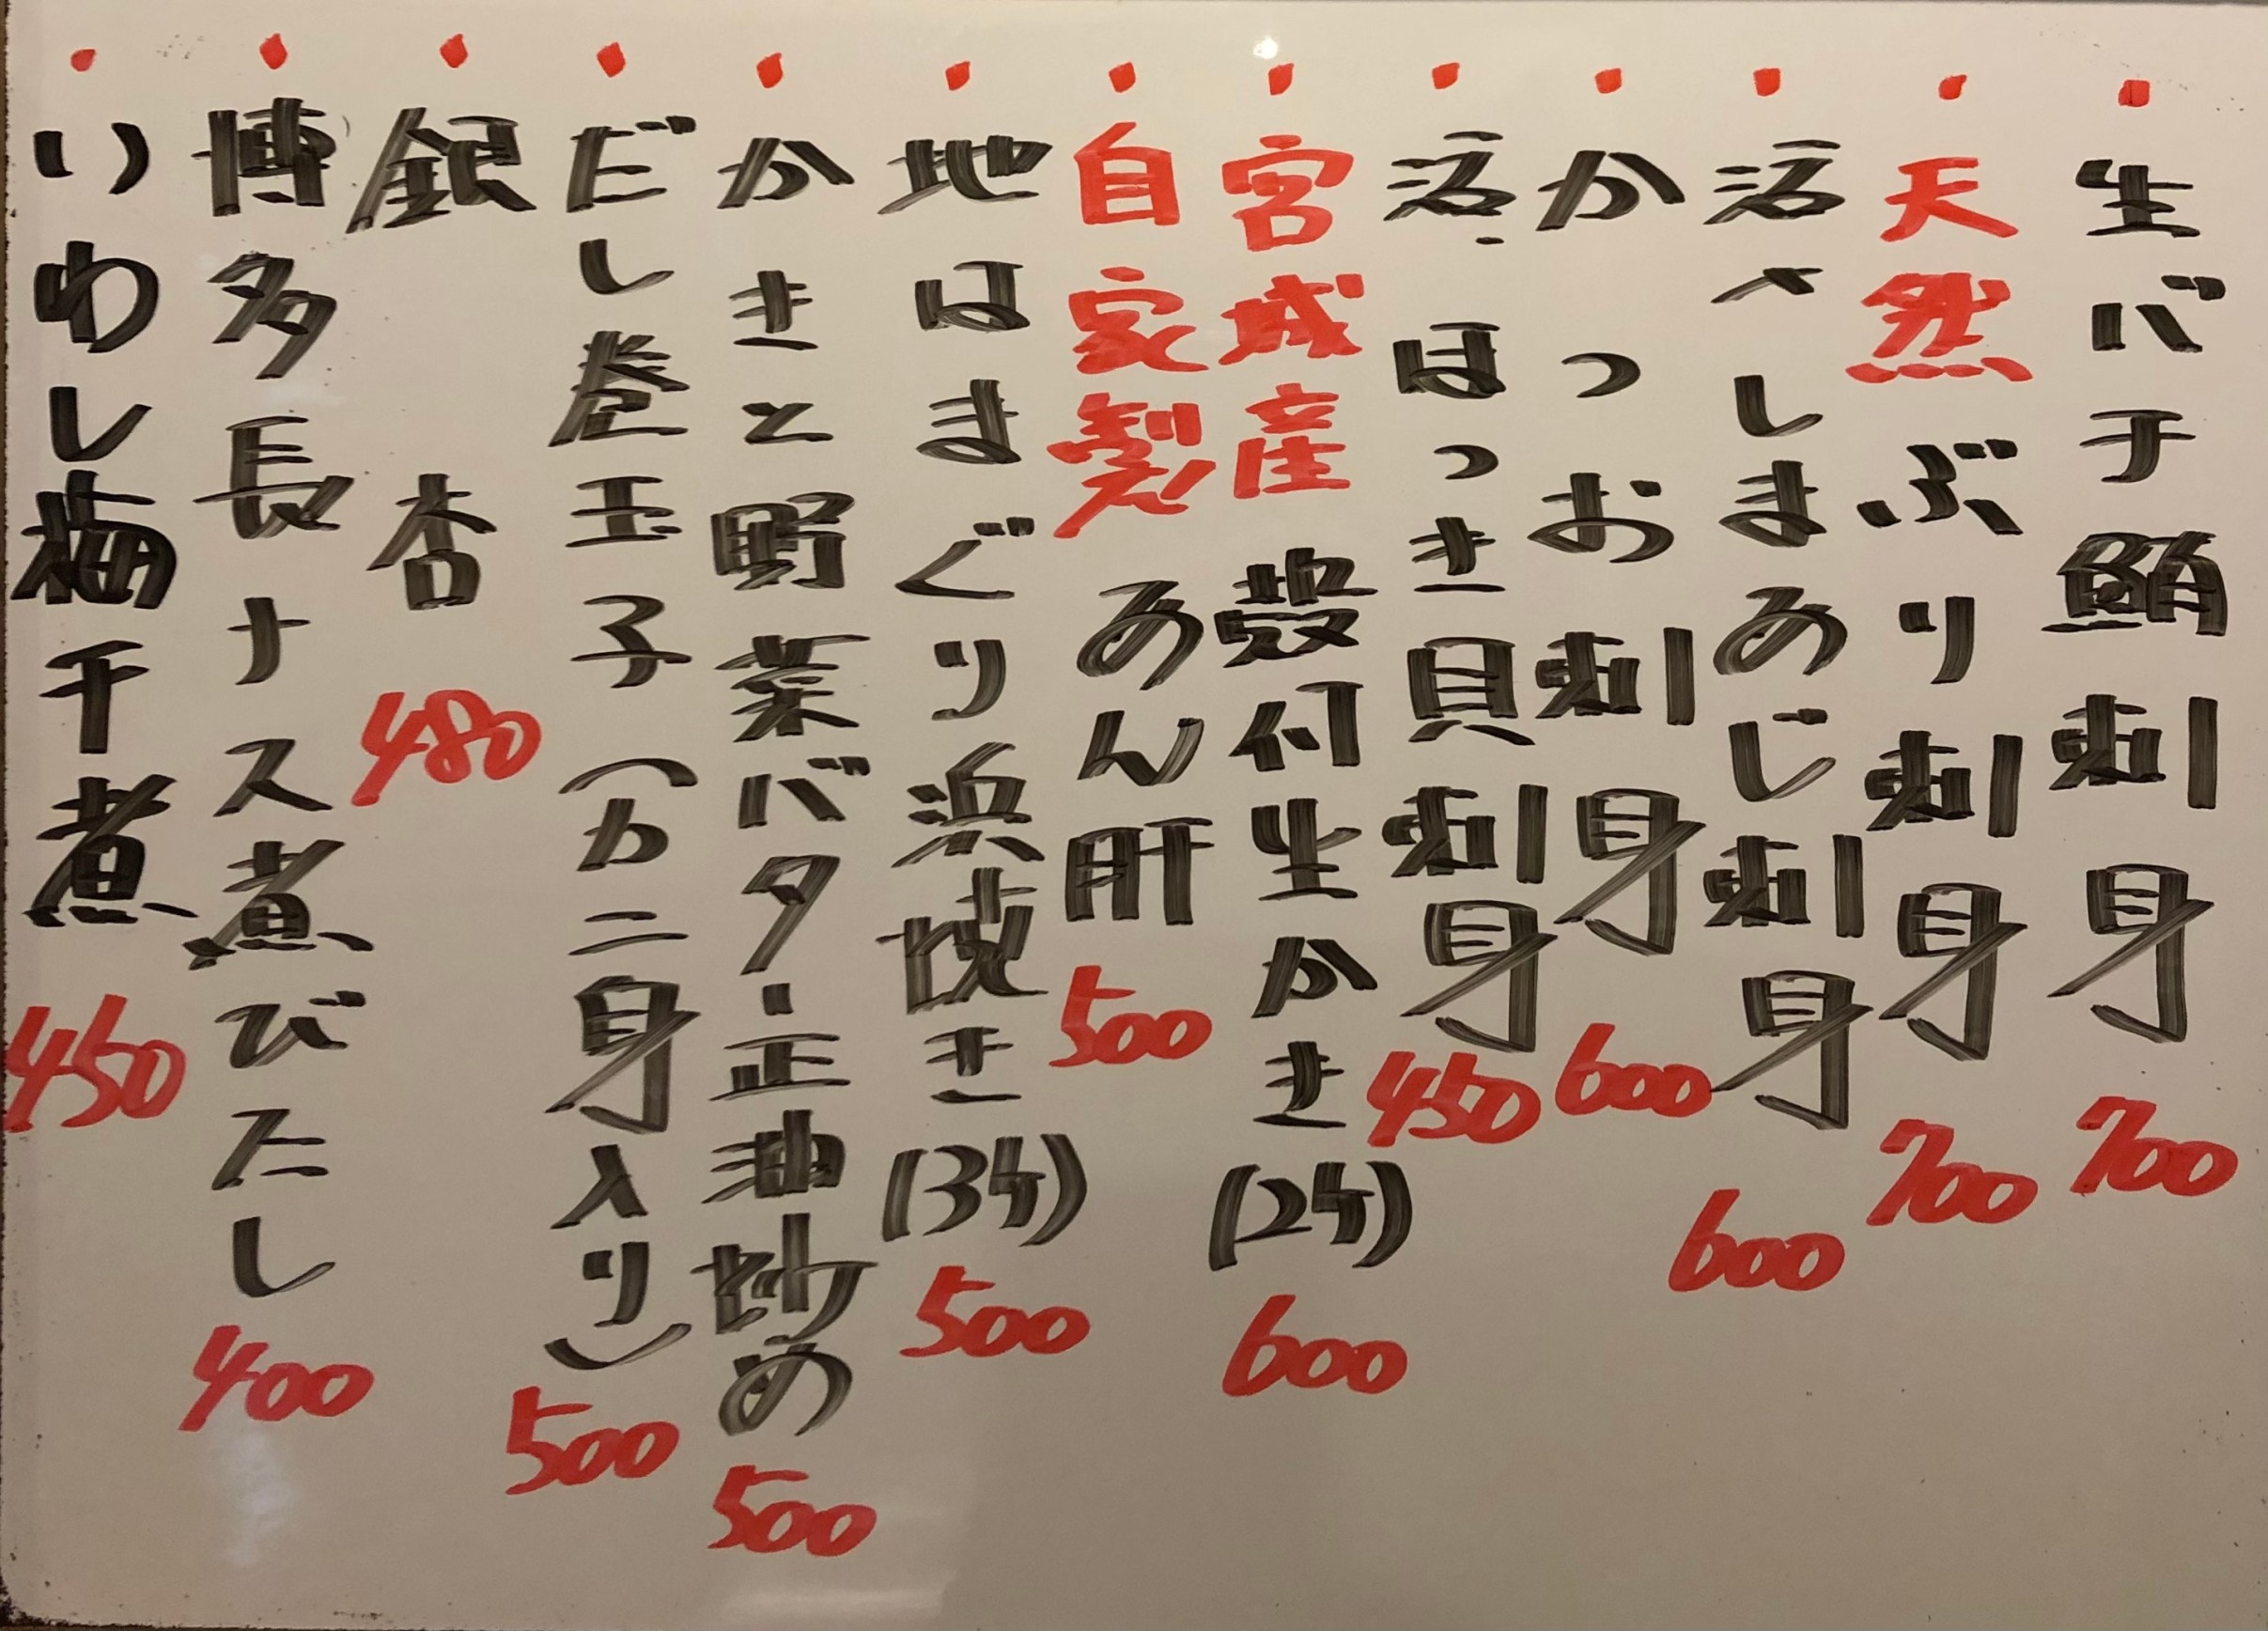 ・生バチ鮪刺身 700
・天然ぶり刺身 700
・活〆しまあじ刺身 600
・かつお刺身 600
・活ほっき貝刺身 450
・宮城産殻付生かき(2ケ) 600
・自家製あん肝 500
・地はまぐり浜焼き(3ケ) 500
・かきと野菜バター正油炒め 500
・だし巻玉子(カニ身入り) 500
・銀杏 480
・博多長ナス煮びたし 400
・いわし梅干煮 450